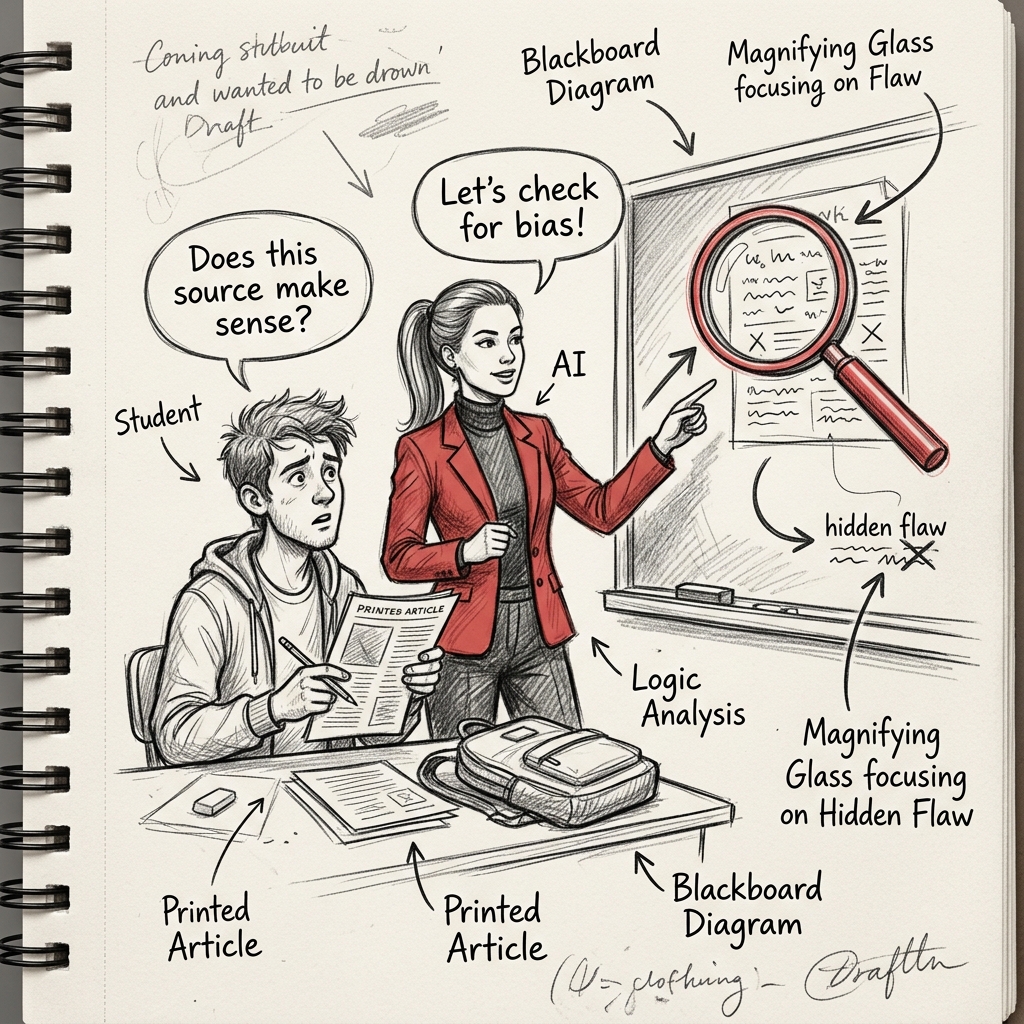 Coming stutbuit
and wanted to be drown
Draft
Blackboard
Diagram
Magnifying Glass
focusing on Flaw
Let's check
for bias!
Does this
source make
sense?
AI
Student
PRINTES ARTICLE
hidden flaw
Logic
Analysis
Magnifying
Glass focusing
on Hidden Flaw
Printed
Article
Printed
Article
Blackboard
Diagram